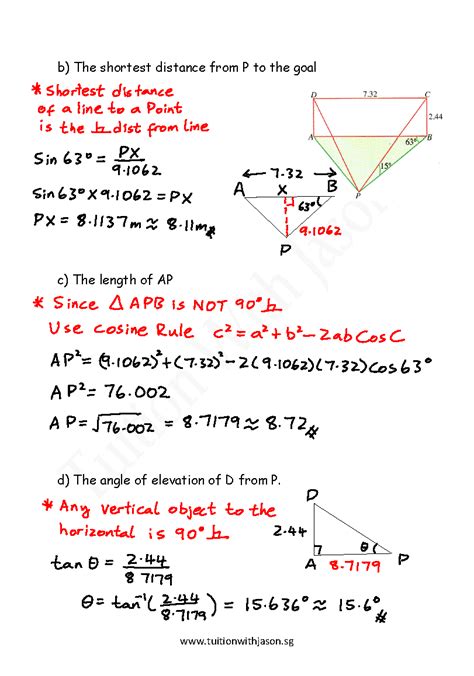 b) The shortest distance from P to the goal
* Shortest distance
of a line to a Point
is the ⊥ dist from line
D 7.32 C
2.44
A 63° B
15°
P
Sin 63° = PX / 9.1062
Sin 63° x 9.1062 = PX
PX = 8.1137m ≈ 8.11m
7.32
A X B
63°
9.1062
P
c) The length of AP
* Since △ APB is NOT 90° ⊥
Use cosine Rule c² = a² + b² - 2ab Cos C
AP² = (9.1062)² + (7.32)² - 2(9.1062)(7.32) cos 63°
AP² = 76.002
AP = √76.002 = 8.7179 ≈ 8.72
d) The angle of elevation of D from P.
* Any vertical object to the
horizontal is 90° ⊥
D
2.44
θ
A 8.7179 P
tan θ = 2.44 / 8.7179
θ = tan⁻¹(2.44 / 8.7179) = 15.636° ≈ 15.6°
Tuition with Jason
www.tuitionwithjason.sg